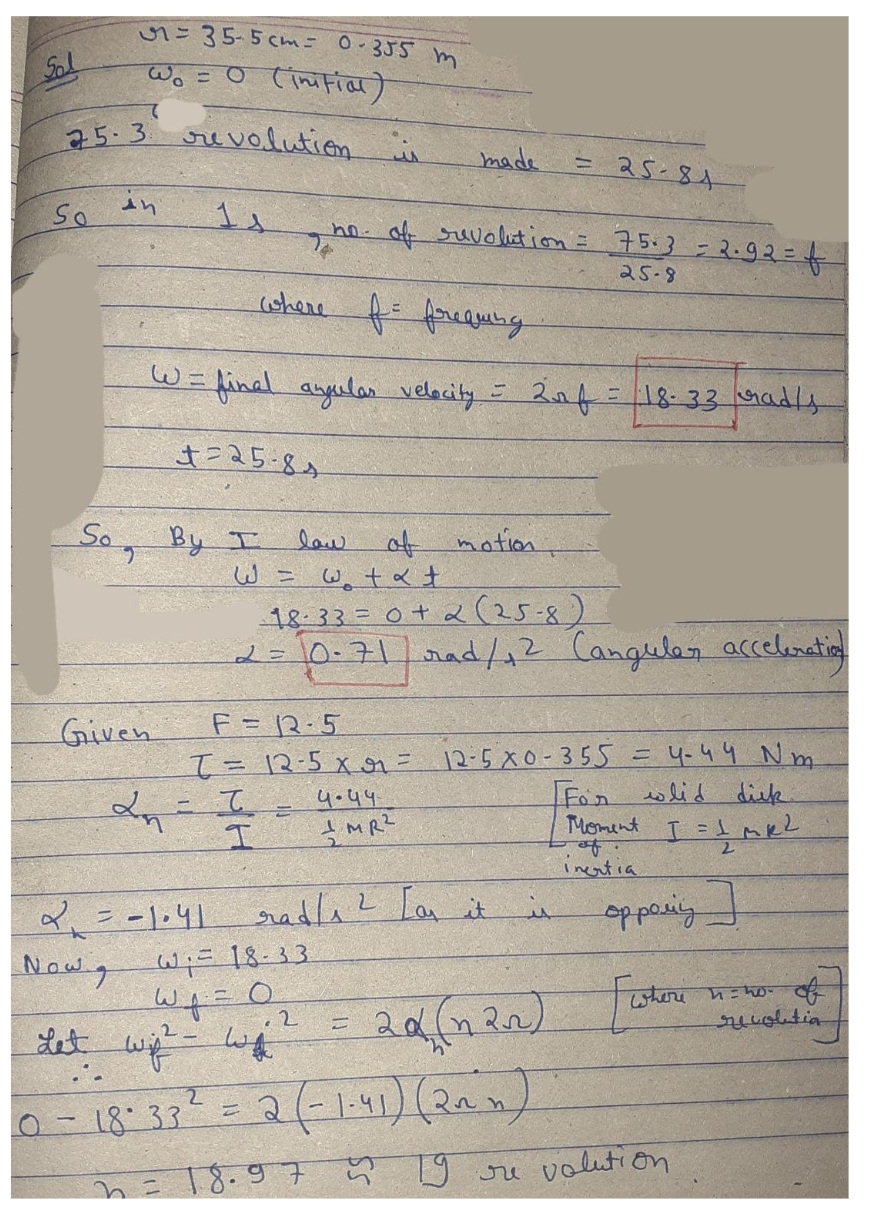 r = 35.5 cm = 0.355 m
Sol
ω₀ = 0 (initial)
75.3 revolution is made = 25.8 s
So in 1 s, no. of revolution = 75.3/25.8 = 2.92 = f
where f = frequny
ω = final angular velocity = 2πf = 18.33 rad/s
t = 25.8 s
So, By I law of motion.
ω = ω₀ + αt
18.33 = 0 + α(25.8)
α = 0.71 rad/s² (angular acceleration)
Given F = 12.5
τ = 12.5 × r = 12.5 × 0.355 = 4.44 Nm
αₙ = τ/I = 4.44/(½MR²) [For solid disk
Moment of inertia I = ½ MR²
αₙ = -1.41 rad/s² [as it is opposing]
Now, ωi = 18.33
ωf = 0 [where n = no. of revolution]
Let ωf² - ωi² = 2αₙ(n2π)
∴
0 - 18.33² = 2(-1.41)(2πn)
n = 18.97 ≈ 19 revolution